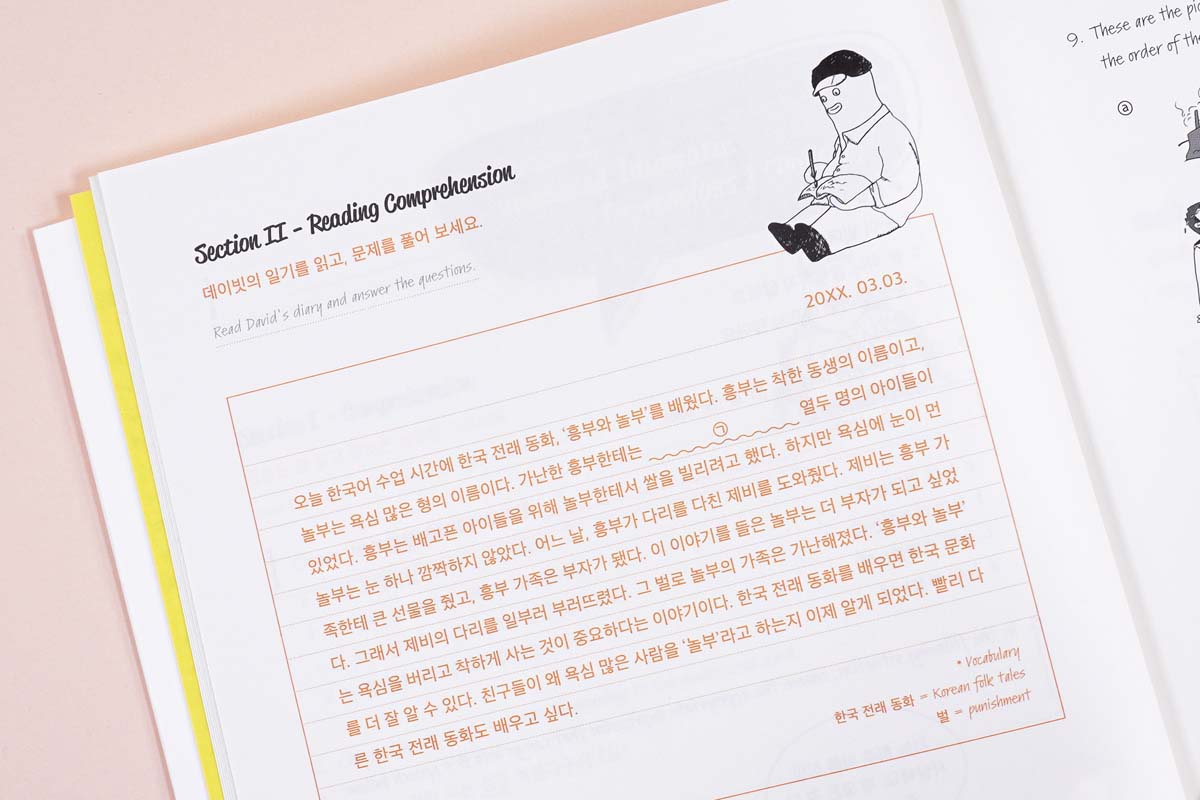 Section II - Reading Comprehension
데이빗의 일기를 읽고, 문제를 풀어 보세요.
Read David's diary and answer the questions.
20XX. 03.03.
오늘 한국어 수업 시간에 한국 전래 동화, ‘흥부와 놀부’를 배웠다. 흥부는 착한 동생의 이름이고,
놀부는 욕심 많은 형의 이름이다. 가난한 흥부한테는 ㉠ 열두 명의 아이들이
있었다. 흥부는 배고픈 아이들을 위해 놀부한테서 쌀을 빌리려고 했다. 하지만 욕심에 눈이 먼
놀부는 눈 하나 깜짝하지 않았다. 어느 날, 흥부가 다리를 다친 제비를 도와줬다. 제비는 흥부 가
족한테 큰 선물을 줬고, 흥부 가족은 부자가 됐다. 이 이야기를 들은 놀부는 더 부자가 되고 싶었
다. 그래서 제비의 다리를 일부러 부러뜨렸다. 그 벌로 놀부의 가족은 가난해졌다. ‘흥부와 놀부’
는 욕심을 버리고 착하게 사는 것이 중요하다는 이야기이다. 한국 전래 동화를 배우면 한국 문화
를 더 잘 알 수 있다. 친구들이 왜 욕심 많은 사람을 ‘놀부’라고 하는지 이제 알게 되었다. 빨리 다
른 한국 전래 동화도 배우고 싶다.
* Vocabulary
한국 전래 동화 = Korean folk tales
벌 = punishment
9. These are the
the order of
ⓐ